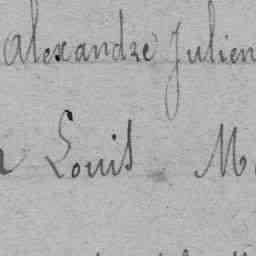 Alexandre Julien
Louis